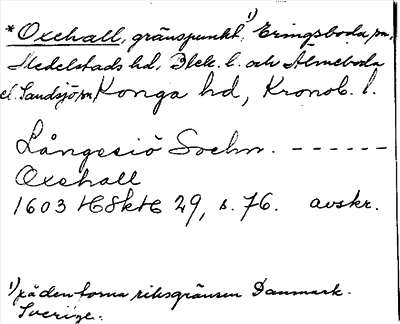 * Oxehall, gränspunkt, 1) Eringsboda sn,
Medelstads hd, Blek. l. och Älmeboda
el. Sandsjö sn, Konga hd, Kronob. l.
Långesiö Sochn. - - - - - -
Oxehall
1603 HSkH 29, s. 76. avskr.
1) på den forna riksgränsen Danmark-
Sverige.